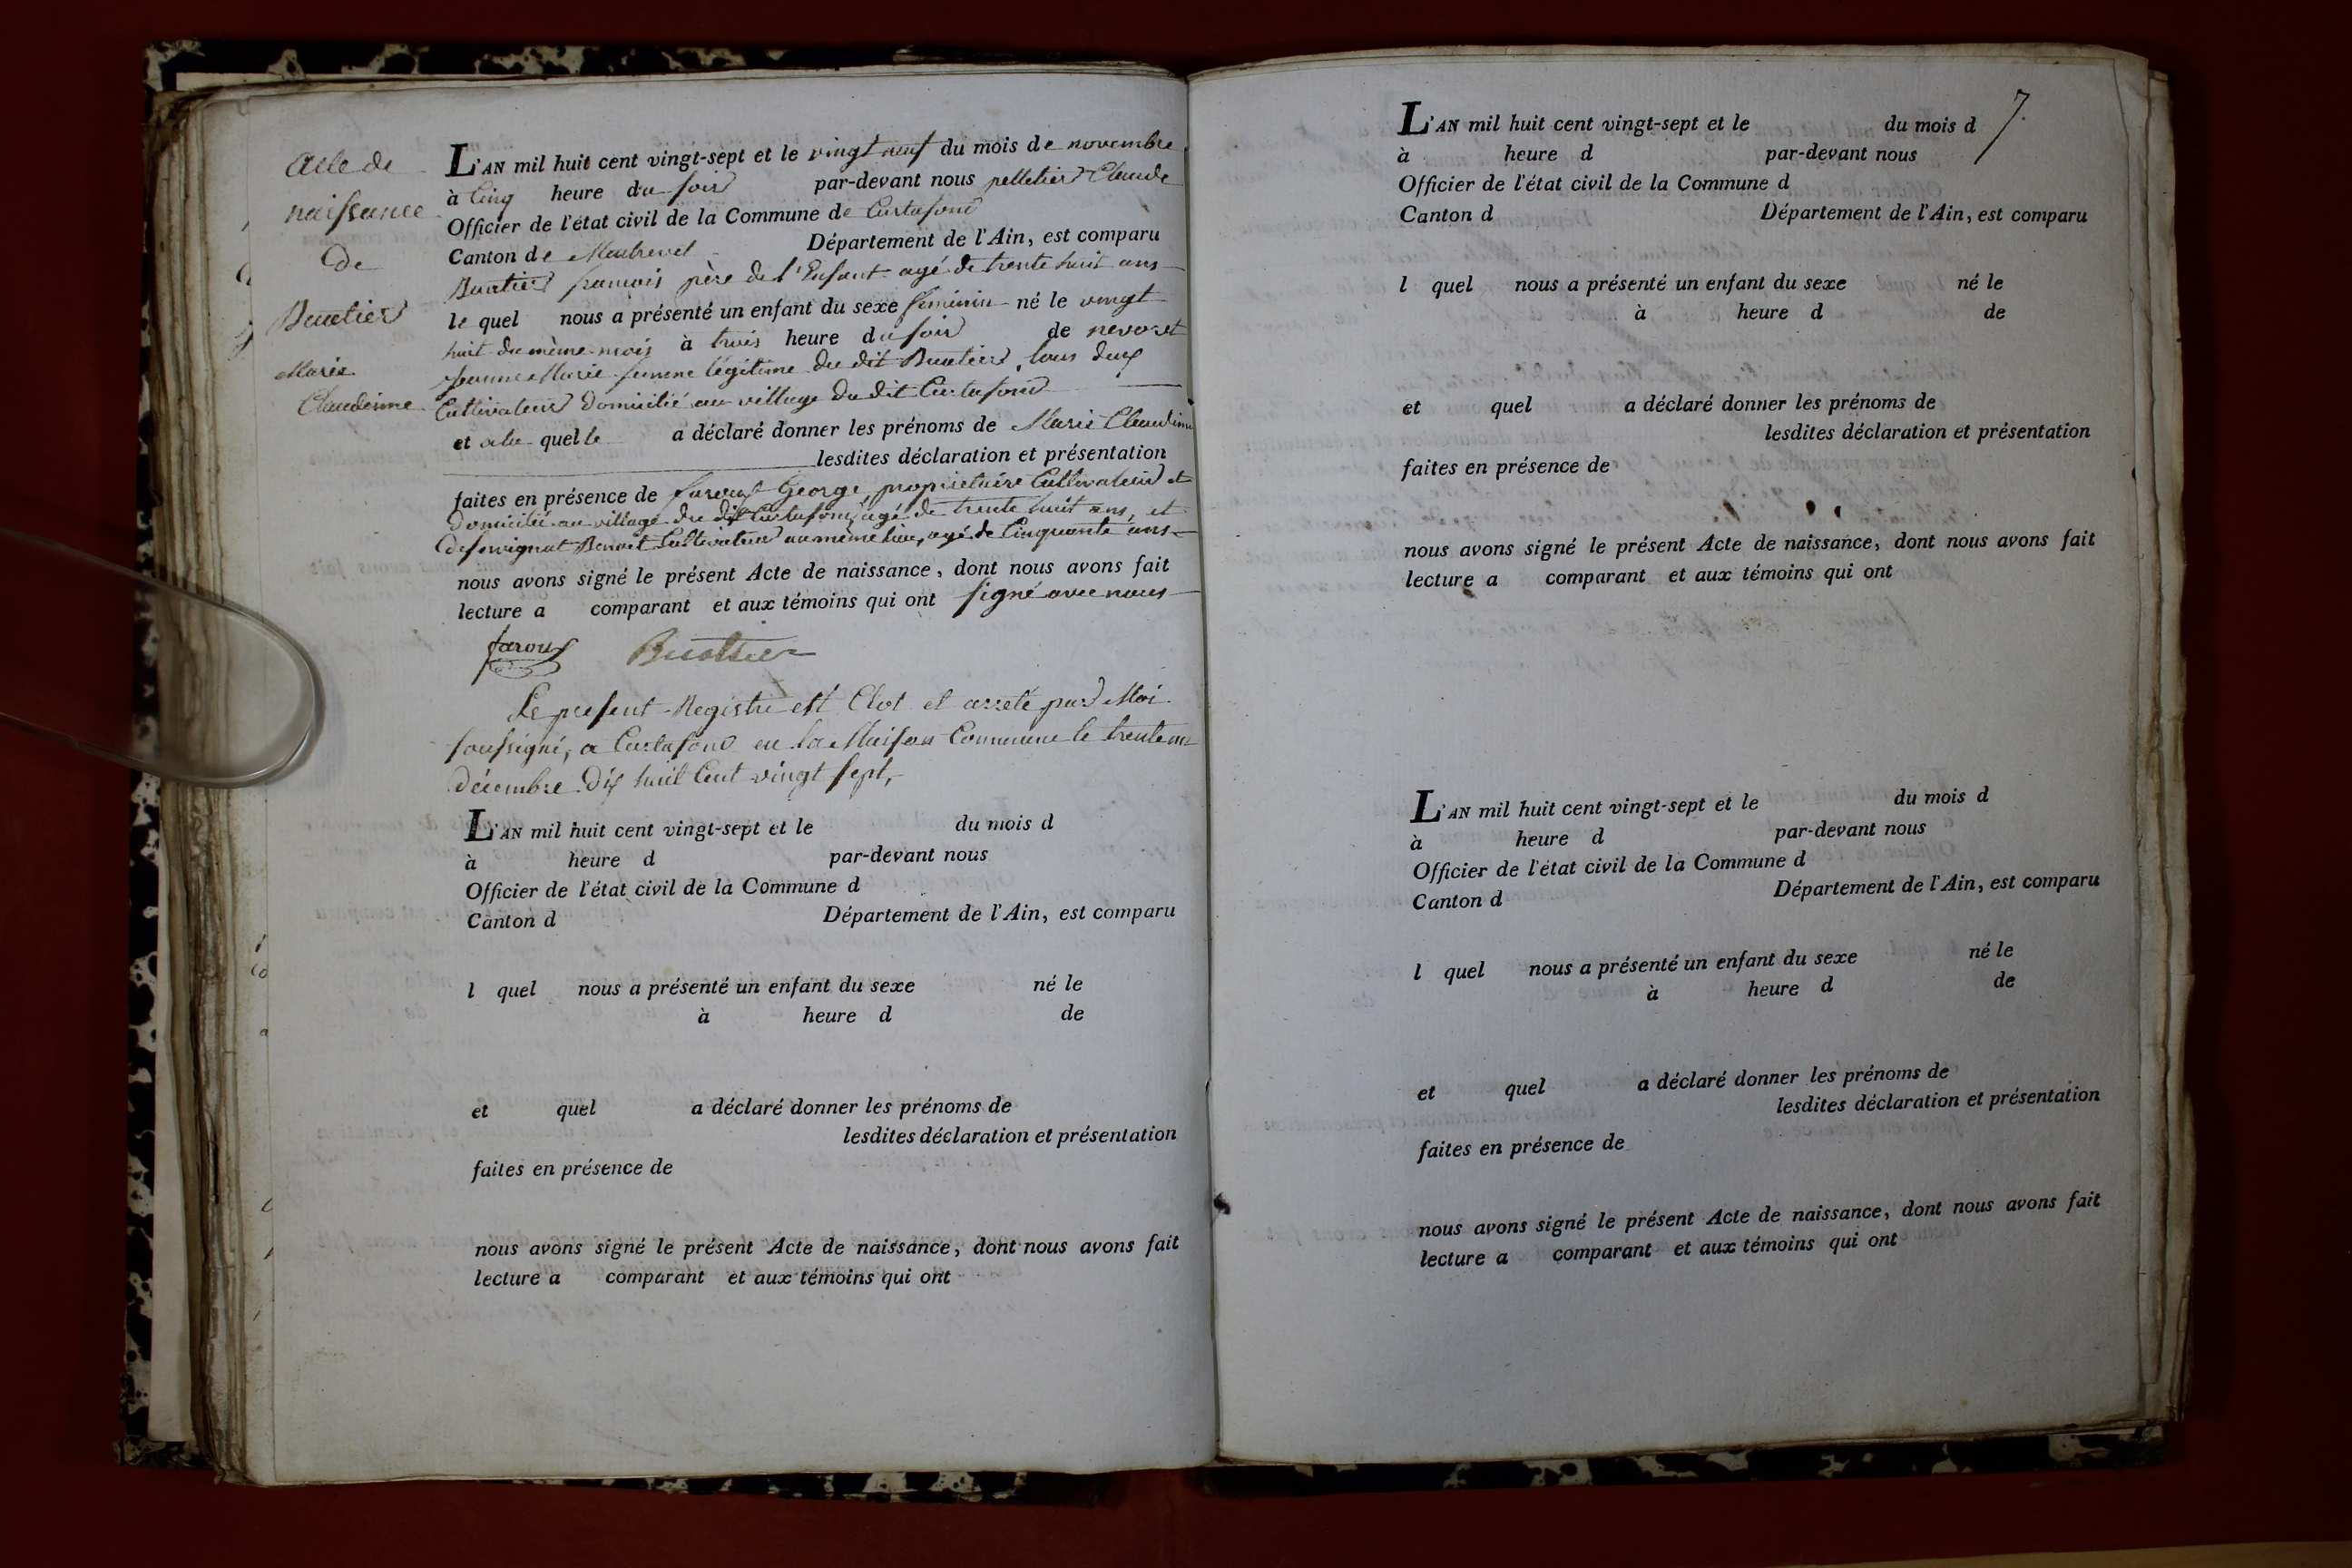 Acte de
naissance
de
Buattier
Marie
Claudinne
L'AN mil huit cent vingt-sept et le vingt neuf du mois de novembre
à Cinq heure du soir par-devant nous pelletier Claude
Officier de l'état civil de la Commune de Curtafond
Canton de Montrevel Département de l'Ain, est comparu
Buattier francois père de l'Enfant agé de trente huit ans
le quel nous a présenté un enfant du sexe féminin né le vingt
huit du même mois à trois heure du soir de nevoret
jeanne Marie femme légitime du dit Buattier, tous deux
Cultivateurs domicilié au village du dit Curtafond
et au quel le a déclaré donner les prénoms de Marie Claudinne
lesdites déclaration et présentation
faites en présence de faroux George, propriétaire Cultivateur et
domicilié au village du dit Curtafond, agé de trente huit ans, et
Benoit Cultivateur au même lieu, agé de Cinquante ans
nous avons signé le présent Acte de naissance, dont nous avons fait
lecture a comparant et aux témoins qui ont signé avec nous
faroux Buattier
Le present Registre est Clot et arreté par Moi
soussigné, a Curtafond en la Maison Commune le trente un
décembre dix huit Cent vingt sept,
L'AN mil huit cent vingt-sept et le du mois d
à heure d par-devant nous
Officier de l'état civil de la Commune d
Canton d Département de l'Ain, est comparu
l quel nous a présenté un enfant du sexe né le
à heure d de
et quel a déclaré donner les prénoms de
lesdites déclaration et présentation
faites en présence de
nous avons signé le présent Acte de naissance, dont nous avons fait
lecture a comparant et aux témoins qui ont
7.
L'AN mil huit cent vingt-sept et le du mois d
à heure d par-devant nous
Officier de l'état civil de la Commune d
Canton d Département de l'Ain, est comparu
l quel nous a présenté un enfant du sexe né le
à heure d de
et quel a déclaré donner les prénoms de
lesdites déclaration et présentation
faites en présence de
nous avons signé le présent Acte de naissance, dont nous avons fait
lecture a comparant et aux témoins qui ont
L'AN mil huit cent vingt-sept et le du mois d
à heure d par-devant nous
Officier de l'état civil de la Commune d
Canton d Département de l'Ain, est comparu
l quel nous a présenté un enfant du sexe né le
à heure d de
et quel a déclaré donner les prénoms de
lesdites déclaration et présentation
faites en présence de
nous avons signé le présent Acte de naissance, dont nous avons fait
lecture a comparant et aux témoins qui ont